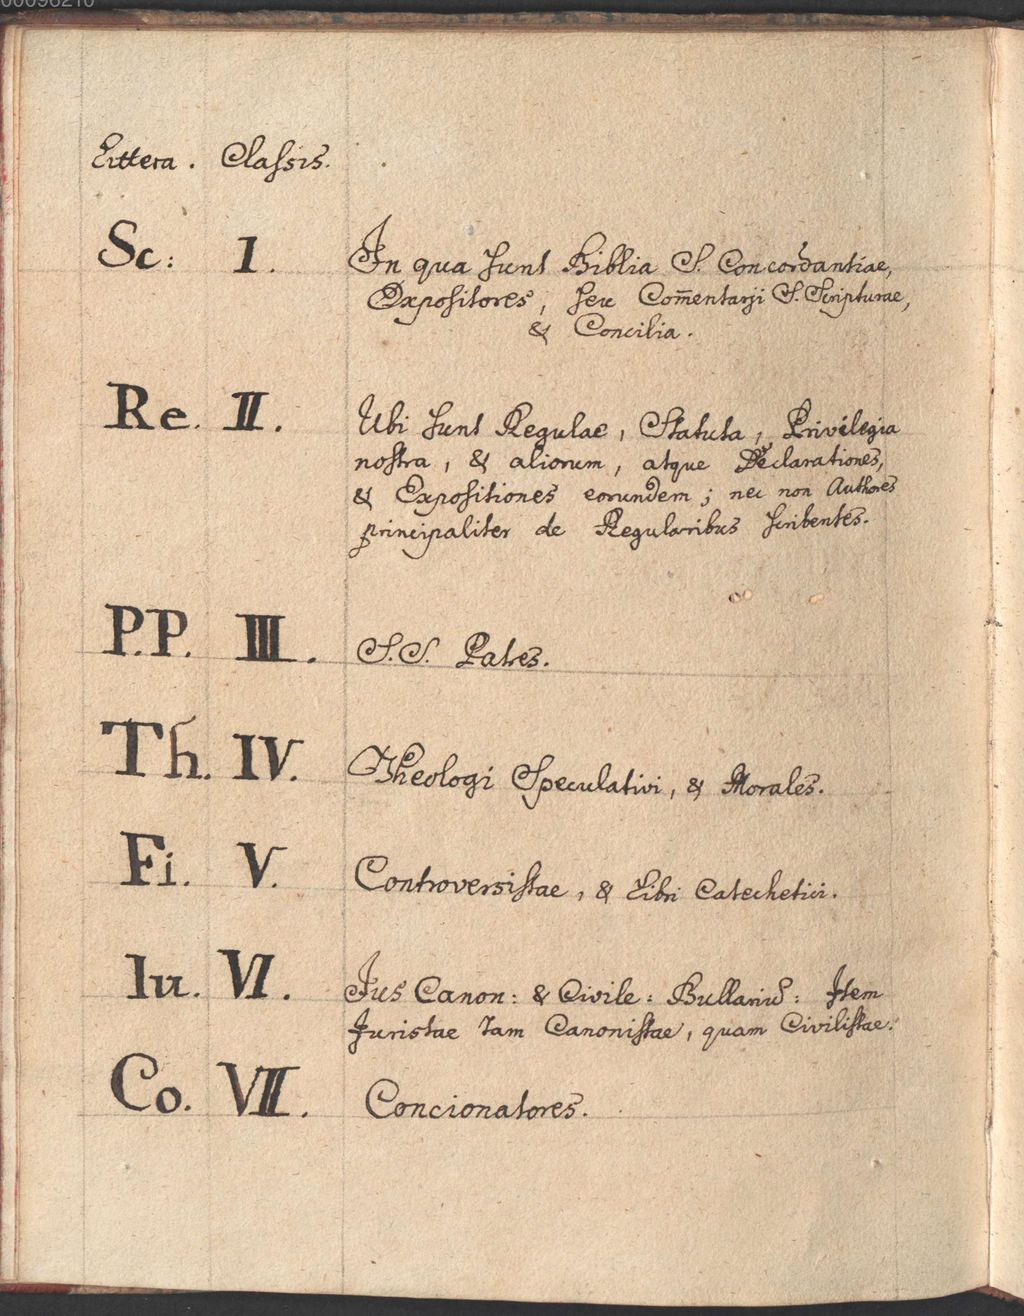 00096210
Littera. Classis.
Sc: I. In qua sunt Biblia S. Concordantiae,
Expositores, seu Com̄entarji S. Scripturae,
& Concilia.
Re. II. Ubi sunt Regulae, Statuta, Privilegia
nostra, & aliorum, atque Declarationes,
& Expositiones eorundem; nec non Authores
principaliter de Regularibus scribentes.
P.P. III. S.S. Patres.
Th. IV. Theologi Speculativi, & Morales.
Fi. V. Controversistae, & Libri Catechetici.
Iu. VI. Jus Canon: & Civile: Bullariū: Item
Juristae tam Canonistae, quam Civilistae.
Co. VII. Concionatores.